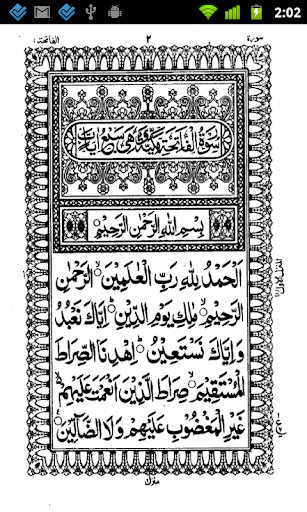 2:02
سورة ٢ الفاتحة ١
سُوْرَةُ الْفَاتِحَةِ مَكِّيَّةٌ وَّهِىَ سَبْعُ اٰيَاتٍ
بِسْمِ اللّٰهِ الرَّحْمٰنِ الرَّحِيْمِ
اَلْحَمْدُ لِلّٰهِ رَبِّ الْعٰلَمِيْنَ ۙ الرَّحْمٰنِ
الرَّحِيْمِ ۙ مٰلِكِ يَوْمِ الدِّيْنِ ؕ اِيَّاكَ نَعْبُدُ
وَاِيَّاكَ نَسْتَعِيْنُ ؕ اِهْدِنَا الصِّرَاطَ
الْمُسْتَقِيْمَ ۙ صِرَاطَ الَّذِيْنَ اَنْعَمْتَ عَلَيْهِمْ ۙ
غَيْرِ الْمَغْضُوْبِ عَلَيْهِمْ وَلَا الضَّآلِّيْنَ
منزل